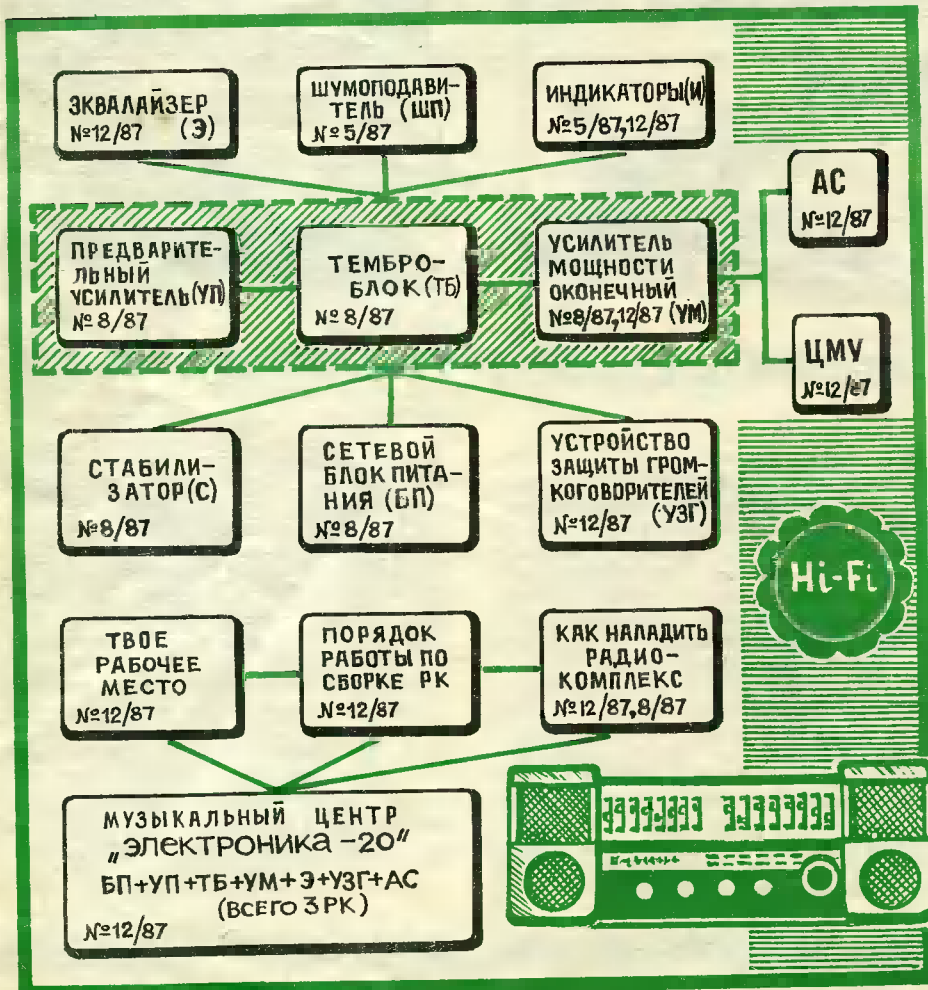 ЭКВАЛАЙЗЕР
№12/87 (Э)
ШУМОПОДАВИ-
ТЕЛЬ (ШП)
№5/87
ИНДИКАТОРЫ(И)
№5/87,12/87
АС
№12/87
ПРЕДВАРИТЕ-
ЛЬНЫЙ
УСИЛИТЕЛЬ(УП)
№8/87
ТЕМБРО-
БЛОК(ТБ)
№8/87
УСИЛИТЕЛЬ
МОЩНОСТИ
ОКОНЕЧНЫЙ
№8/87,12/87 (УМ)
ЦМУ
№12/87
СТАБИЛИ-
ЗАТОР(С)
№8/87
СЕТЕВОЙ
БЛОК ПИТА-
НИЯ (БП)
№8/87
УСТРОЙСТВО
ЗАЩИТЫ ГРОМ-
КОГОВОРИТЕЛЕЙ
№12/87 (УЗГ)
Hi-Fi
ТВОЕ
РАБОЧЕЕ
МЕСТО
№12/87
ПОРЯДОК
РАБОТЫ ПО
СБОРКЕ РК
№12/87
КАК НАЛАДИТЬ
РАДИО-
КОМПЛЕКС
№12/87,8/87
МУЗЫКАЛЬНЫЙ ЦЕНТР
„ЭЛЕКТРОНИКА-20"
БП+УП+ТБ+УМ+Э+УЗГ+АС
(ВСЕГО 3 РК)
№12/87